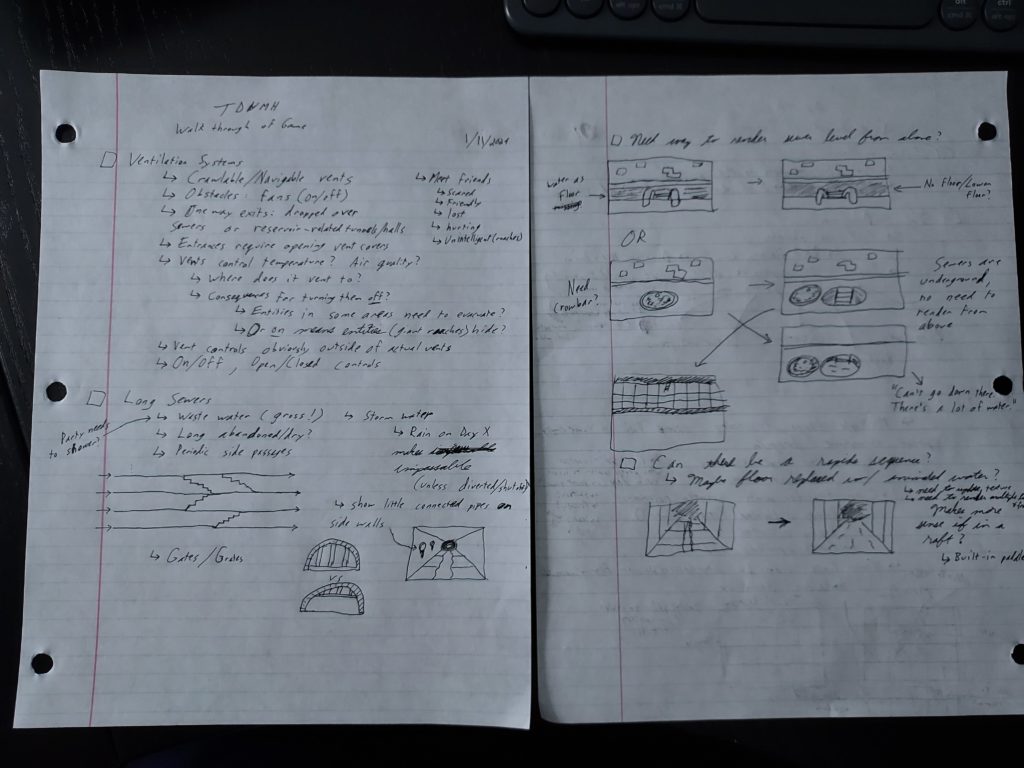 TDNMH
Walkthrough of Game
1/11/2024
□ Ventilation Systems
↳ Crawlable/Navigable vents
↳ Obstacles: fans (on/off)
↳ One way exits: dropped over
sewers or reservoir-related tunnels/halls
↳ Entrances require opening vent covers
↳ Vents control temperature? Air quality?
↳ Where does it vent to?
↳ Consequences for turning them off?
↳ Entities in some areas need to evacuate?
↳ Or on means entities (giant roaches) hide?
↳ Vent controls obviously outside of actual vents
↳ On/Off, Open/Closed controls
↳ Meet friends
↳ Scared
↳ Friendly
↳ lost
↳ hurting
↳ Unintelligent (roaches)
□ Long Sewers
↳ Waste water (gross!)
Party needs
to shower?
↳ Long abandoned/dry?
↳ Periodic side passages
↳ Storm water
↳ Rain on Day X
makes
impassable
(unless diverted/shut off)
↳ show little connected pipes on
side walls
↳ Gates/Grates
vs
□ Need way to render sewer level from above?
Water as
Floor
→
No Floor/Lower
Floor?
OR
Need
Crowbar?
→
Sewers are
underground,
no need to
render from
above
"Can't go down there.
There's a lot of water."
□ Can there be a rapids sequence?
↳ Maybe floor replaced w/ animated water?
↳ need to
↳ need to render multiple
Makes more
sense if in a
raft?
↳ Built-in paddle
→